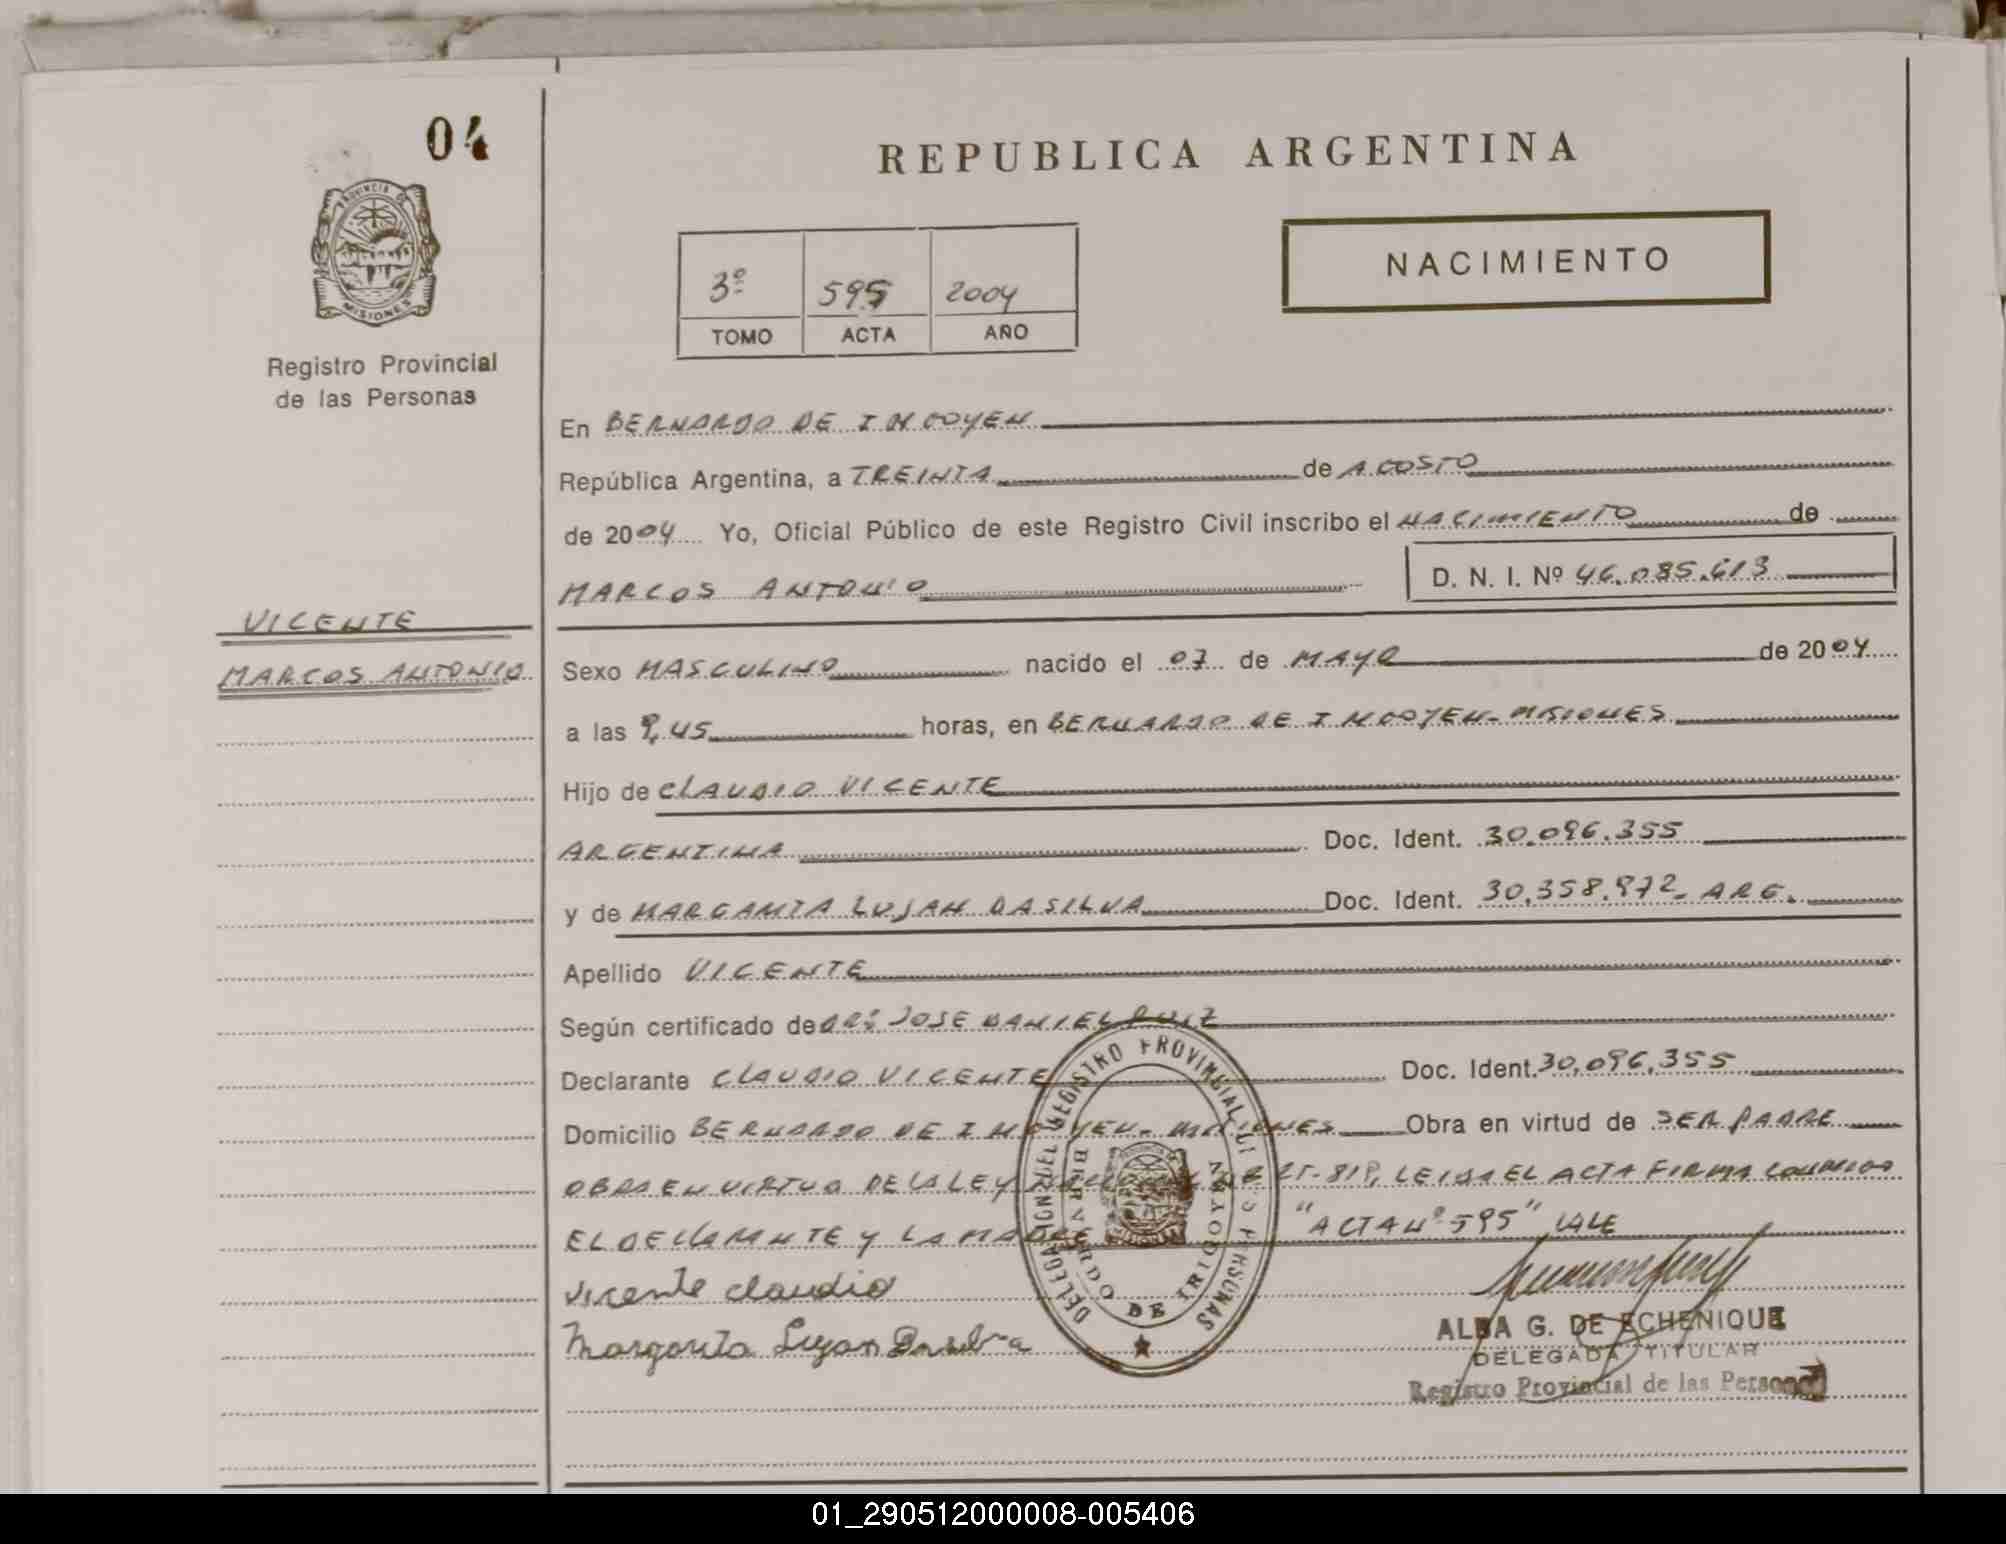 04
PROVINCIA DE
MISIONES
Registro Provincial
de las Personas
VICENTE
MARCOS ANTONIO
REPUBLICA ARGENTINA
3º 595 2004
TOMO ACTA AÑO
NACIMIENTO
En BERNARDO DE IRIGOYEN
República Argentina, a TREINTA de AGOSTO
de 2004 Yo, Oficial Público de este Registro Civil inscribo el NACIMIENTO de
MARCOS ANTONIO D. N. I. Nº 46.085.613
Sexo MASCULINO nacido el 07 de MAYO de 2004
a las 9,45 horas, en BERNARDO DE IRIGOYEN - MISIONES
Hijo de CLAUDIO VICENTE
ARGENTINA Doc. Ident. 30.096.355
y de MARGARITA LUJAN DASILVA Doc. Ident. 30.358.972 - ARG.
Apellido VICENTE
Según certificado de DR: JOSE DANIEL RUIZ
Declarante CLAUDIO VICENTE Doc. Ident. 30,096,355
Domicilio BERNARDO DE IRIGOYEN - MISIONES Obra en virtud de SER PADRE
OBRA EN VIRTUD DE LA LEY 25.819, LEIDA EL ACTA FIRMA CONMIGO
EL DECLARANTE Y LA MADRE "ACTA Nº 595" VALE
Vicente Claudio
Margarita Lujan Dasilva
DELEGACION DEL REGISTRO PROVINCIAL DE LAS PERSONAS
BERNARDO DE IRIGOYEN
ALBA G. DE ECHENIQUE
DELEGADA TITULAR
Registro Provincial de las Personas
01_290512000008-005406